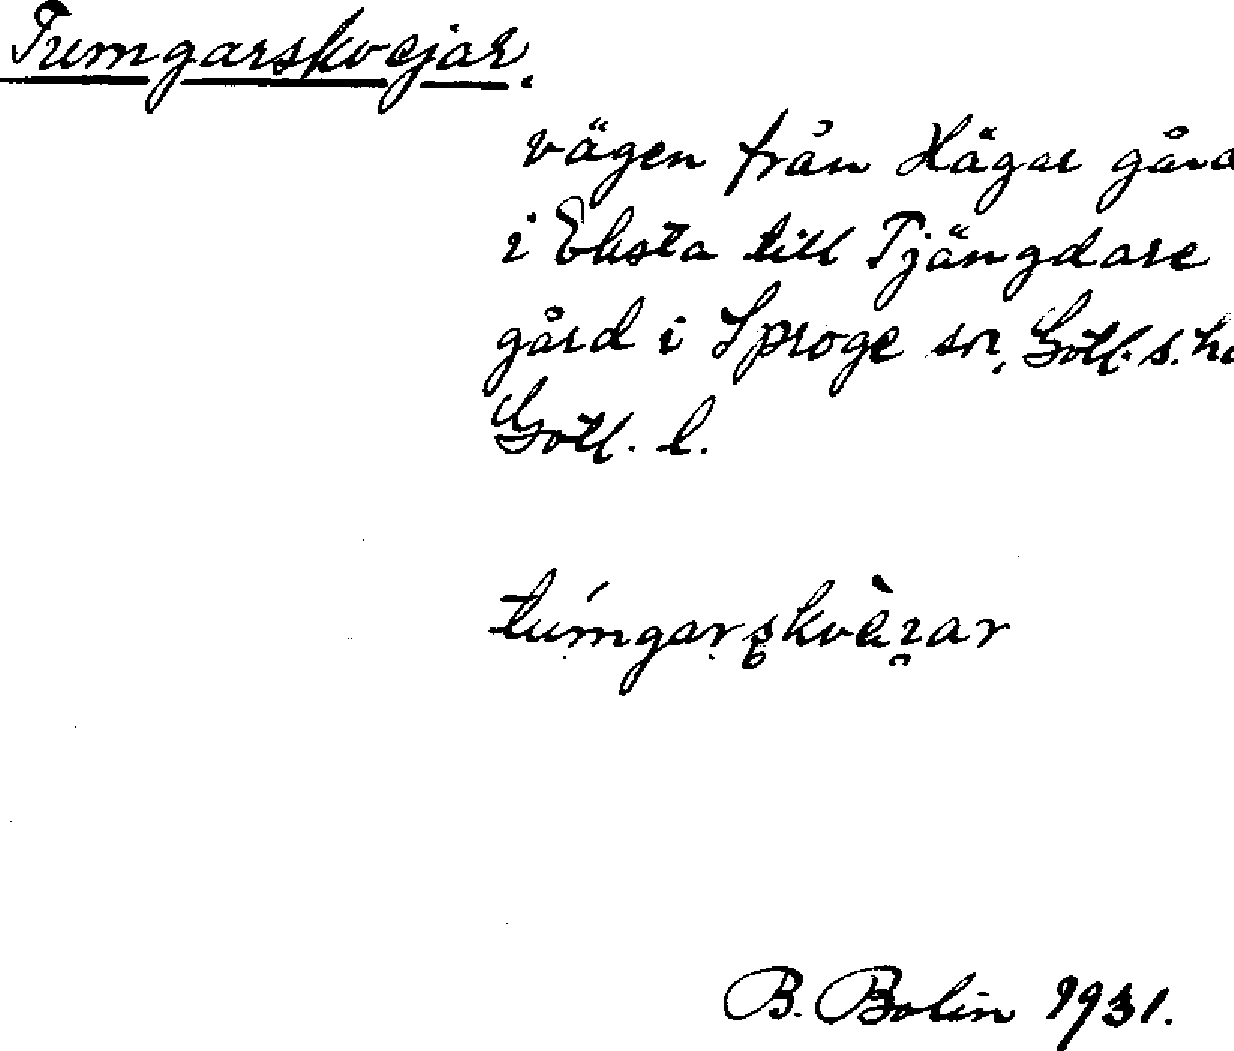 Tumgarskvejar.
vägen från Hägar gård
i Eksta till Tjängdare
gård i Sproge sn, Gotl. s. h
Gotl. l.
B. Bolin 1931.